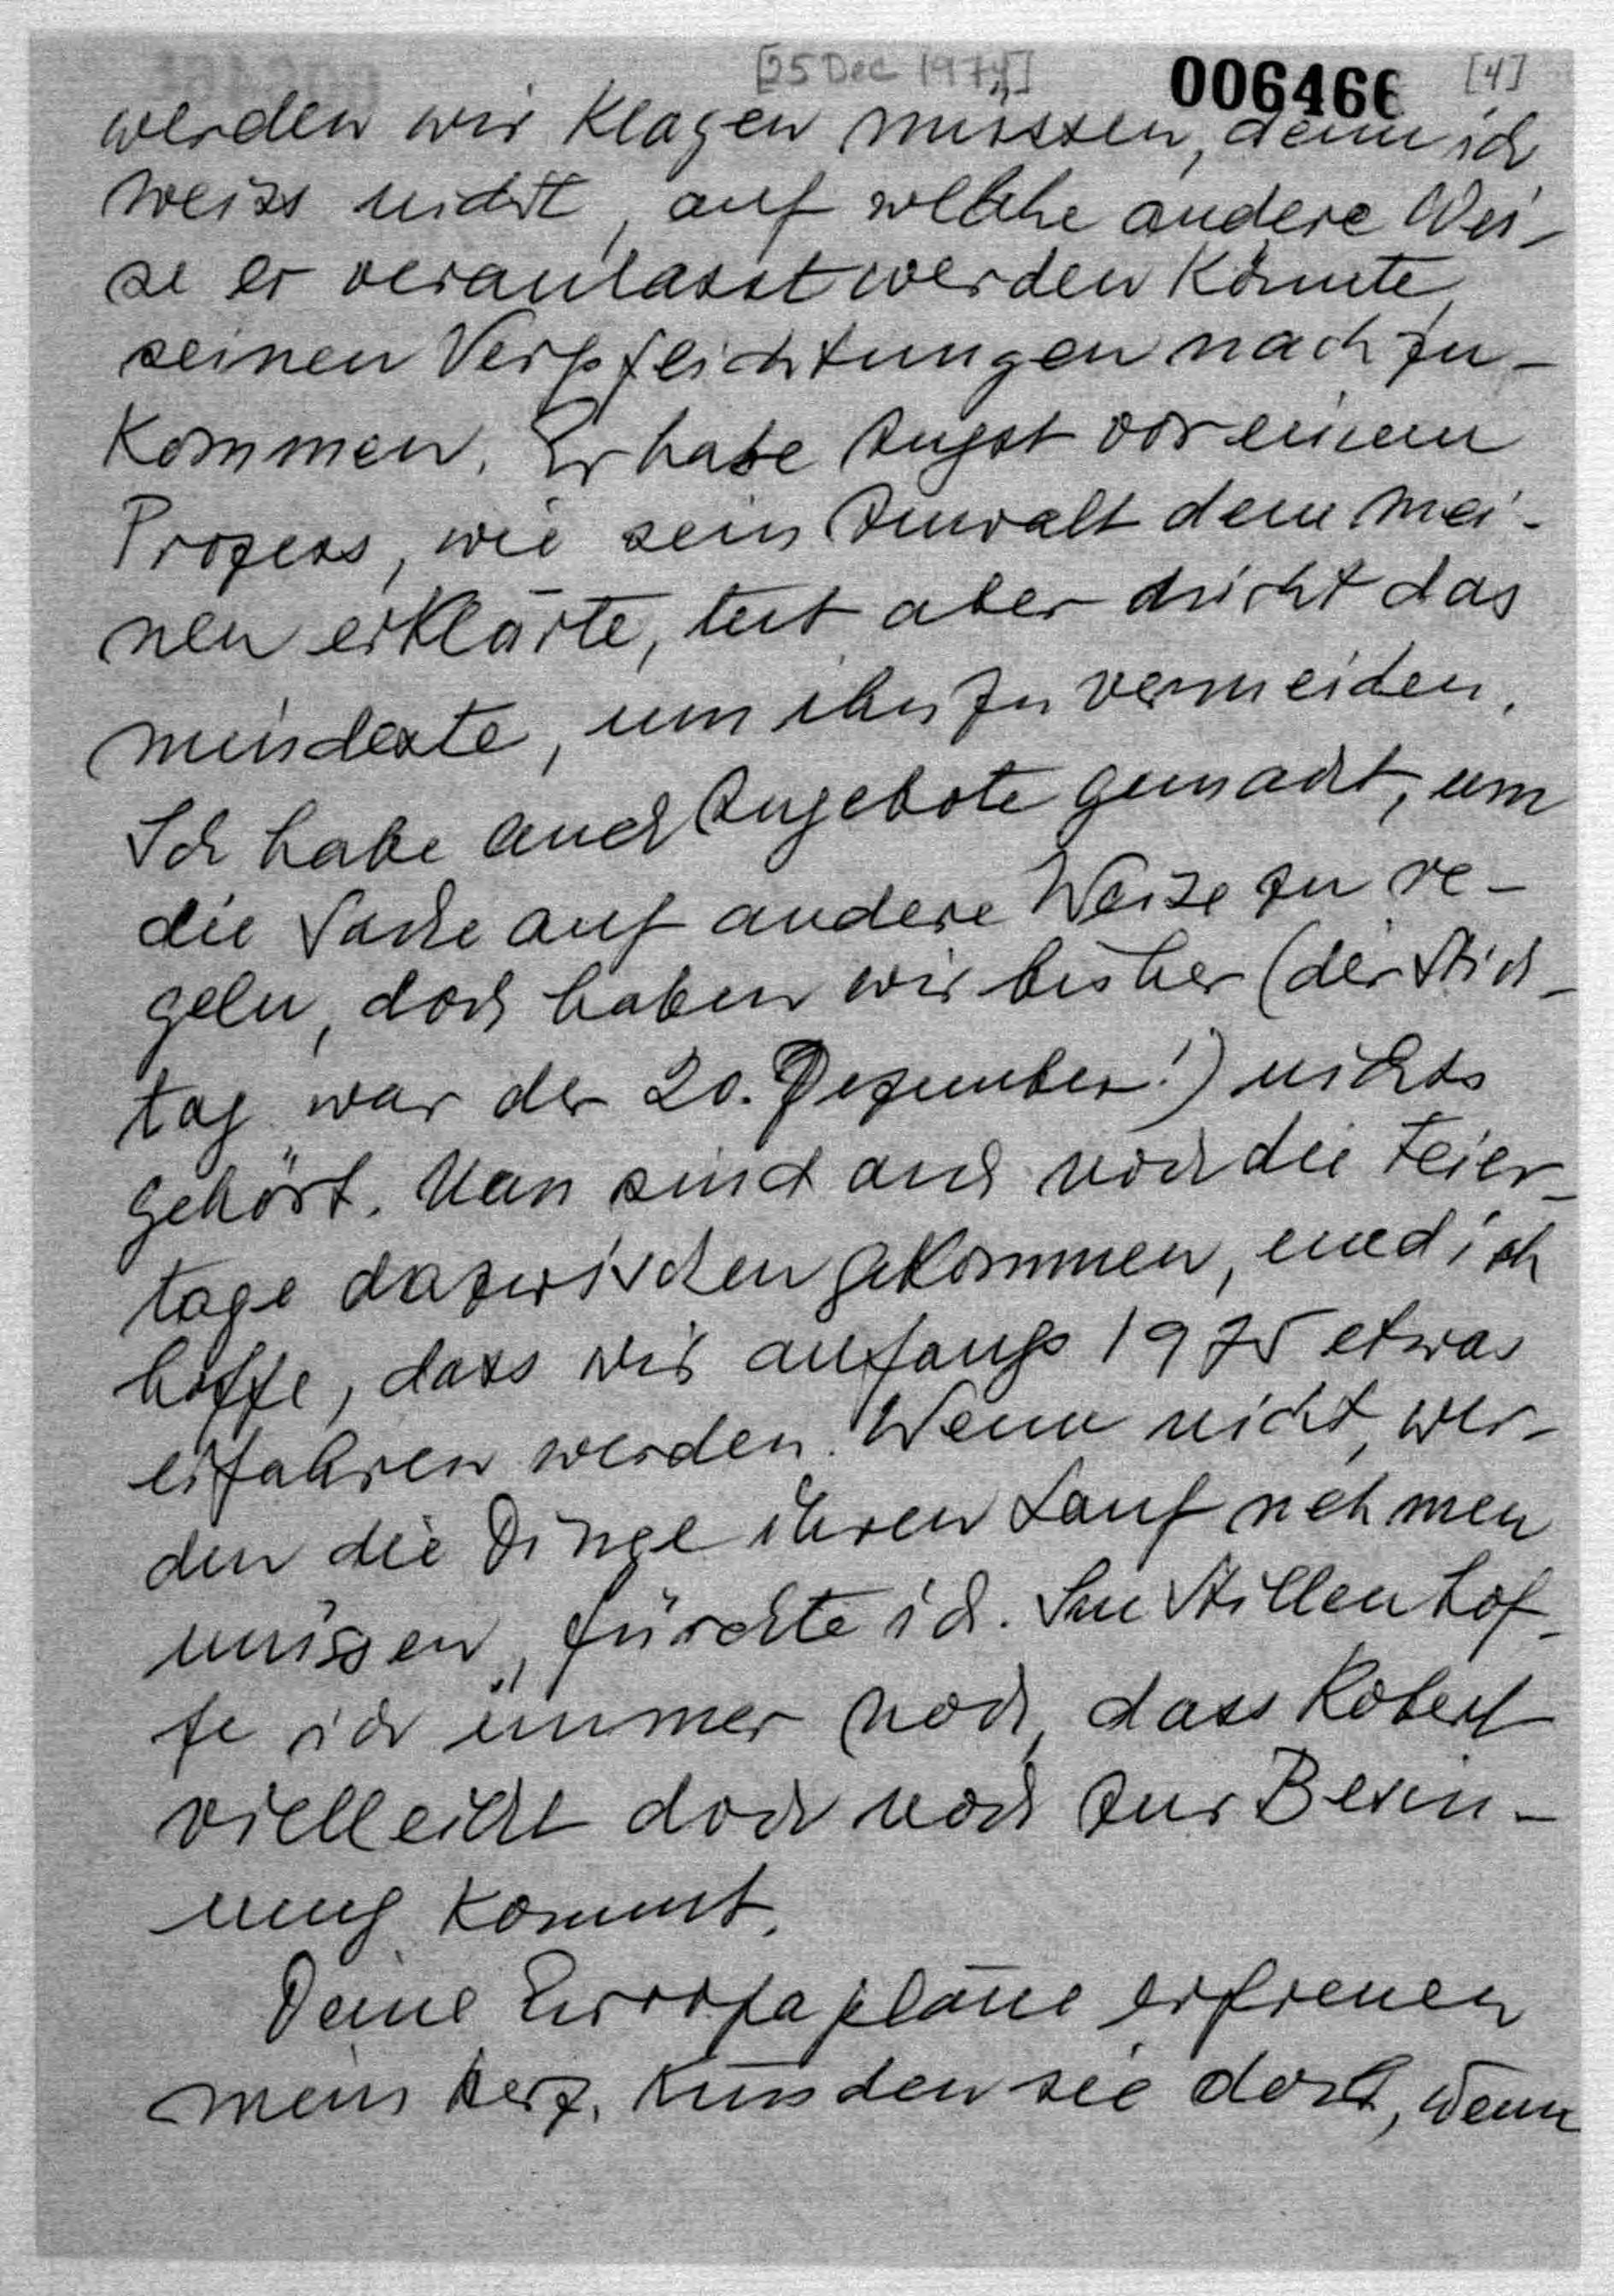 [25 Dec 1974] 006466 [4]
werden wir klagen müssen, denn ich
weiss nicht, auf welche andere Wei-
se er veranlasst werden könnte,
seinen Verpflichtungen nachzu-
kommen. Er habe Angst vor einem
Prozess, wie sein Anwalt dem mei-
nen erklärte, tut aber nicht das
mindeste, um ihn zu vermeiden.
Ich habe auch Angebote gemacht, um
die Sache auf andere Weise zu re-
geln, doch haben wir bisher (der Stich-
tag war der 20. Dezember!) nichts
gehört. Nun sind auch noch die Feier-
tage dazwischen gekommen, und ich
hoffe, dass wir anfangs 1975 etwas
erfahren werden. Wenn nicht, wer-
den die Dinge ihren Lauf nehmen
müssen, fürchte ich. Im Stillen hof-
fe ich immer noch, dass Robert
vielleicht doch noch zur Besin-
nung kommt.
Deine Europapläne erfreuen
mein Herz. Künden sie doch, wenn